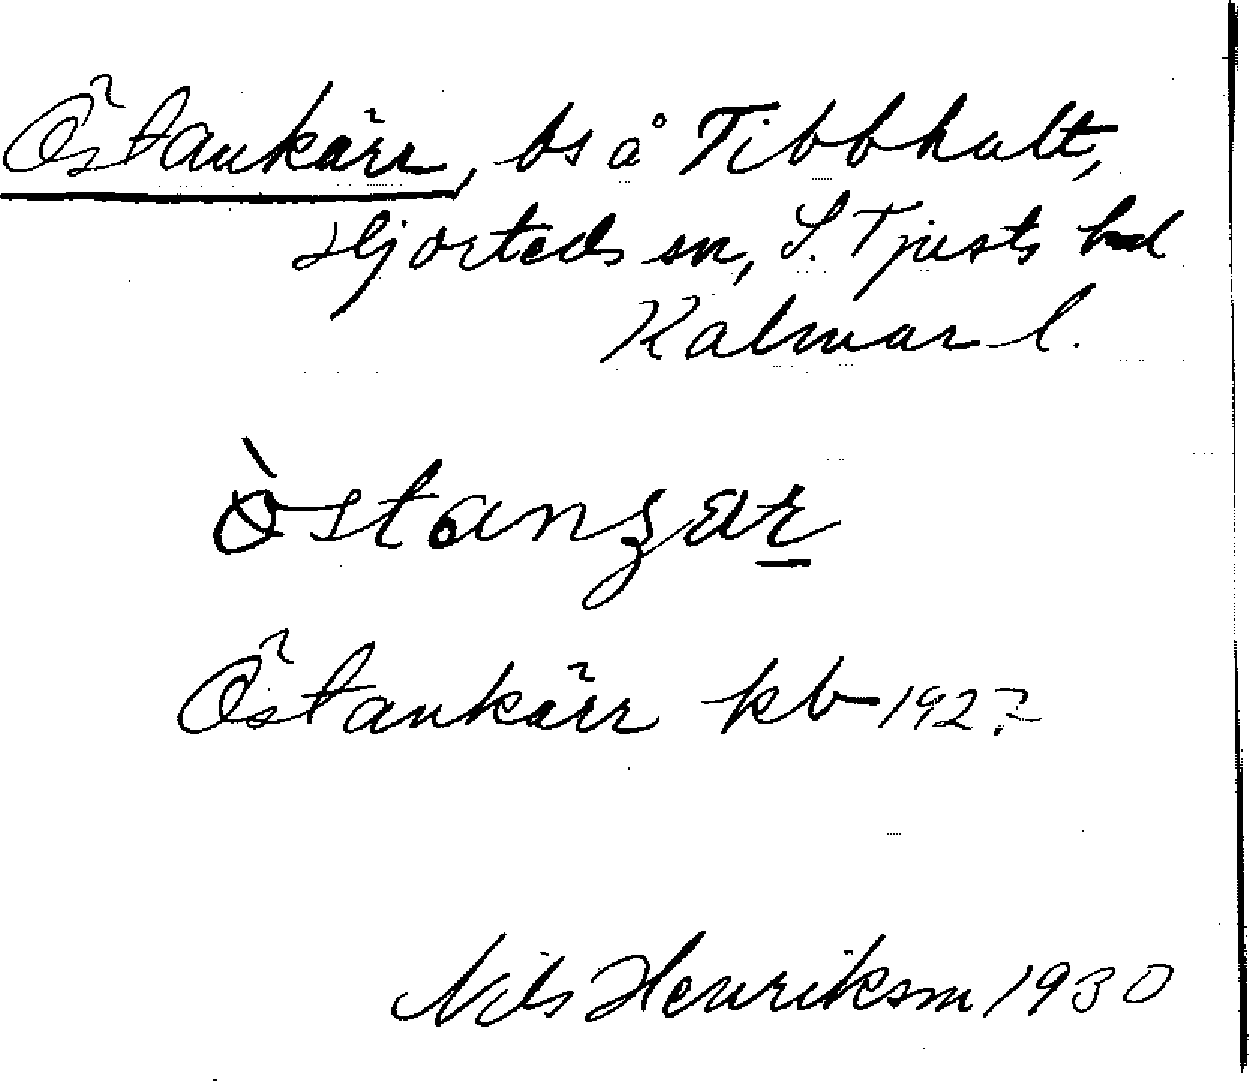 Östankärr, bs å Tibbhult,
Hjorteds sn, S. Tjusts hd
Kalmar l.
Östankärr kb 192?
Nils Henrikson 1930